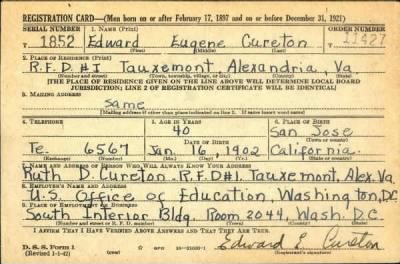 REGISTRATION CARD—(Men born on or after February 17, 1897 and on or before December 31, 1921)
SERIAL NUMBER 1. NAME (Print) ORDER NUMBER
1852 Edward Eugene Cureton 11427
(First) (Middle) (Last)
2. PLACE OF RESIDENCE (Print)
R.F.D.#1 Tauxemont, Alexandria, Va
(Number and street) (Town, township, village, or city) (County) (State)
[THE PLACE OF RESIDENCE GIVEN ON THE LINE ABOVE WILL DETERMINE LOCAL BOARD
JURISDICTION; LINE 2 OF REGISTRATION CERTIFICATE WILL BE IDENTICAL]
3. MAILING ADDRESS
Same
[Mailing address if other than place indicated on line 2. If same insert word same]
4. TELEPHONE 5. AGE IN YEARS 6. PLACE OF BIRTH
40 San Jose
DATE OF BIRTH (Town or county)
Te. 6567 Jan 16, 1902 California
(Exchange) (Number) (Mo.) (Day) (Yr.) (State or country)
7. NAME AND ADDRESS OF PERSON WHO WILL ALWAYS KNOW YOUR ADDRESS
Ruth D. Cureton - R.F.D#1, Tauxemont, Alex. Va
8. EMPLOYER'S NAME AND ADDRESS
U.S. Office of Education, Washington, D.C.
9. PLACE OF EMPLOYMENT OR BUSINESS
South Interior Bldg. Room 2044, Wash. D.C.
(Number and street or R. F. D. number) (Town) (County) (State)
I AFFIRM THAT I HAVE VERIFIED ABOVE ANSWERS AND THAT THEY ARE TRUE.
D. S. S. Form 1 Edward E. Cureton
(Revised 1-1-42) (over) GPO